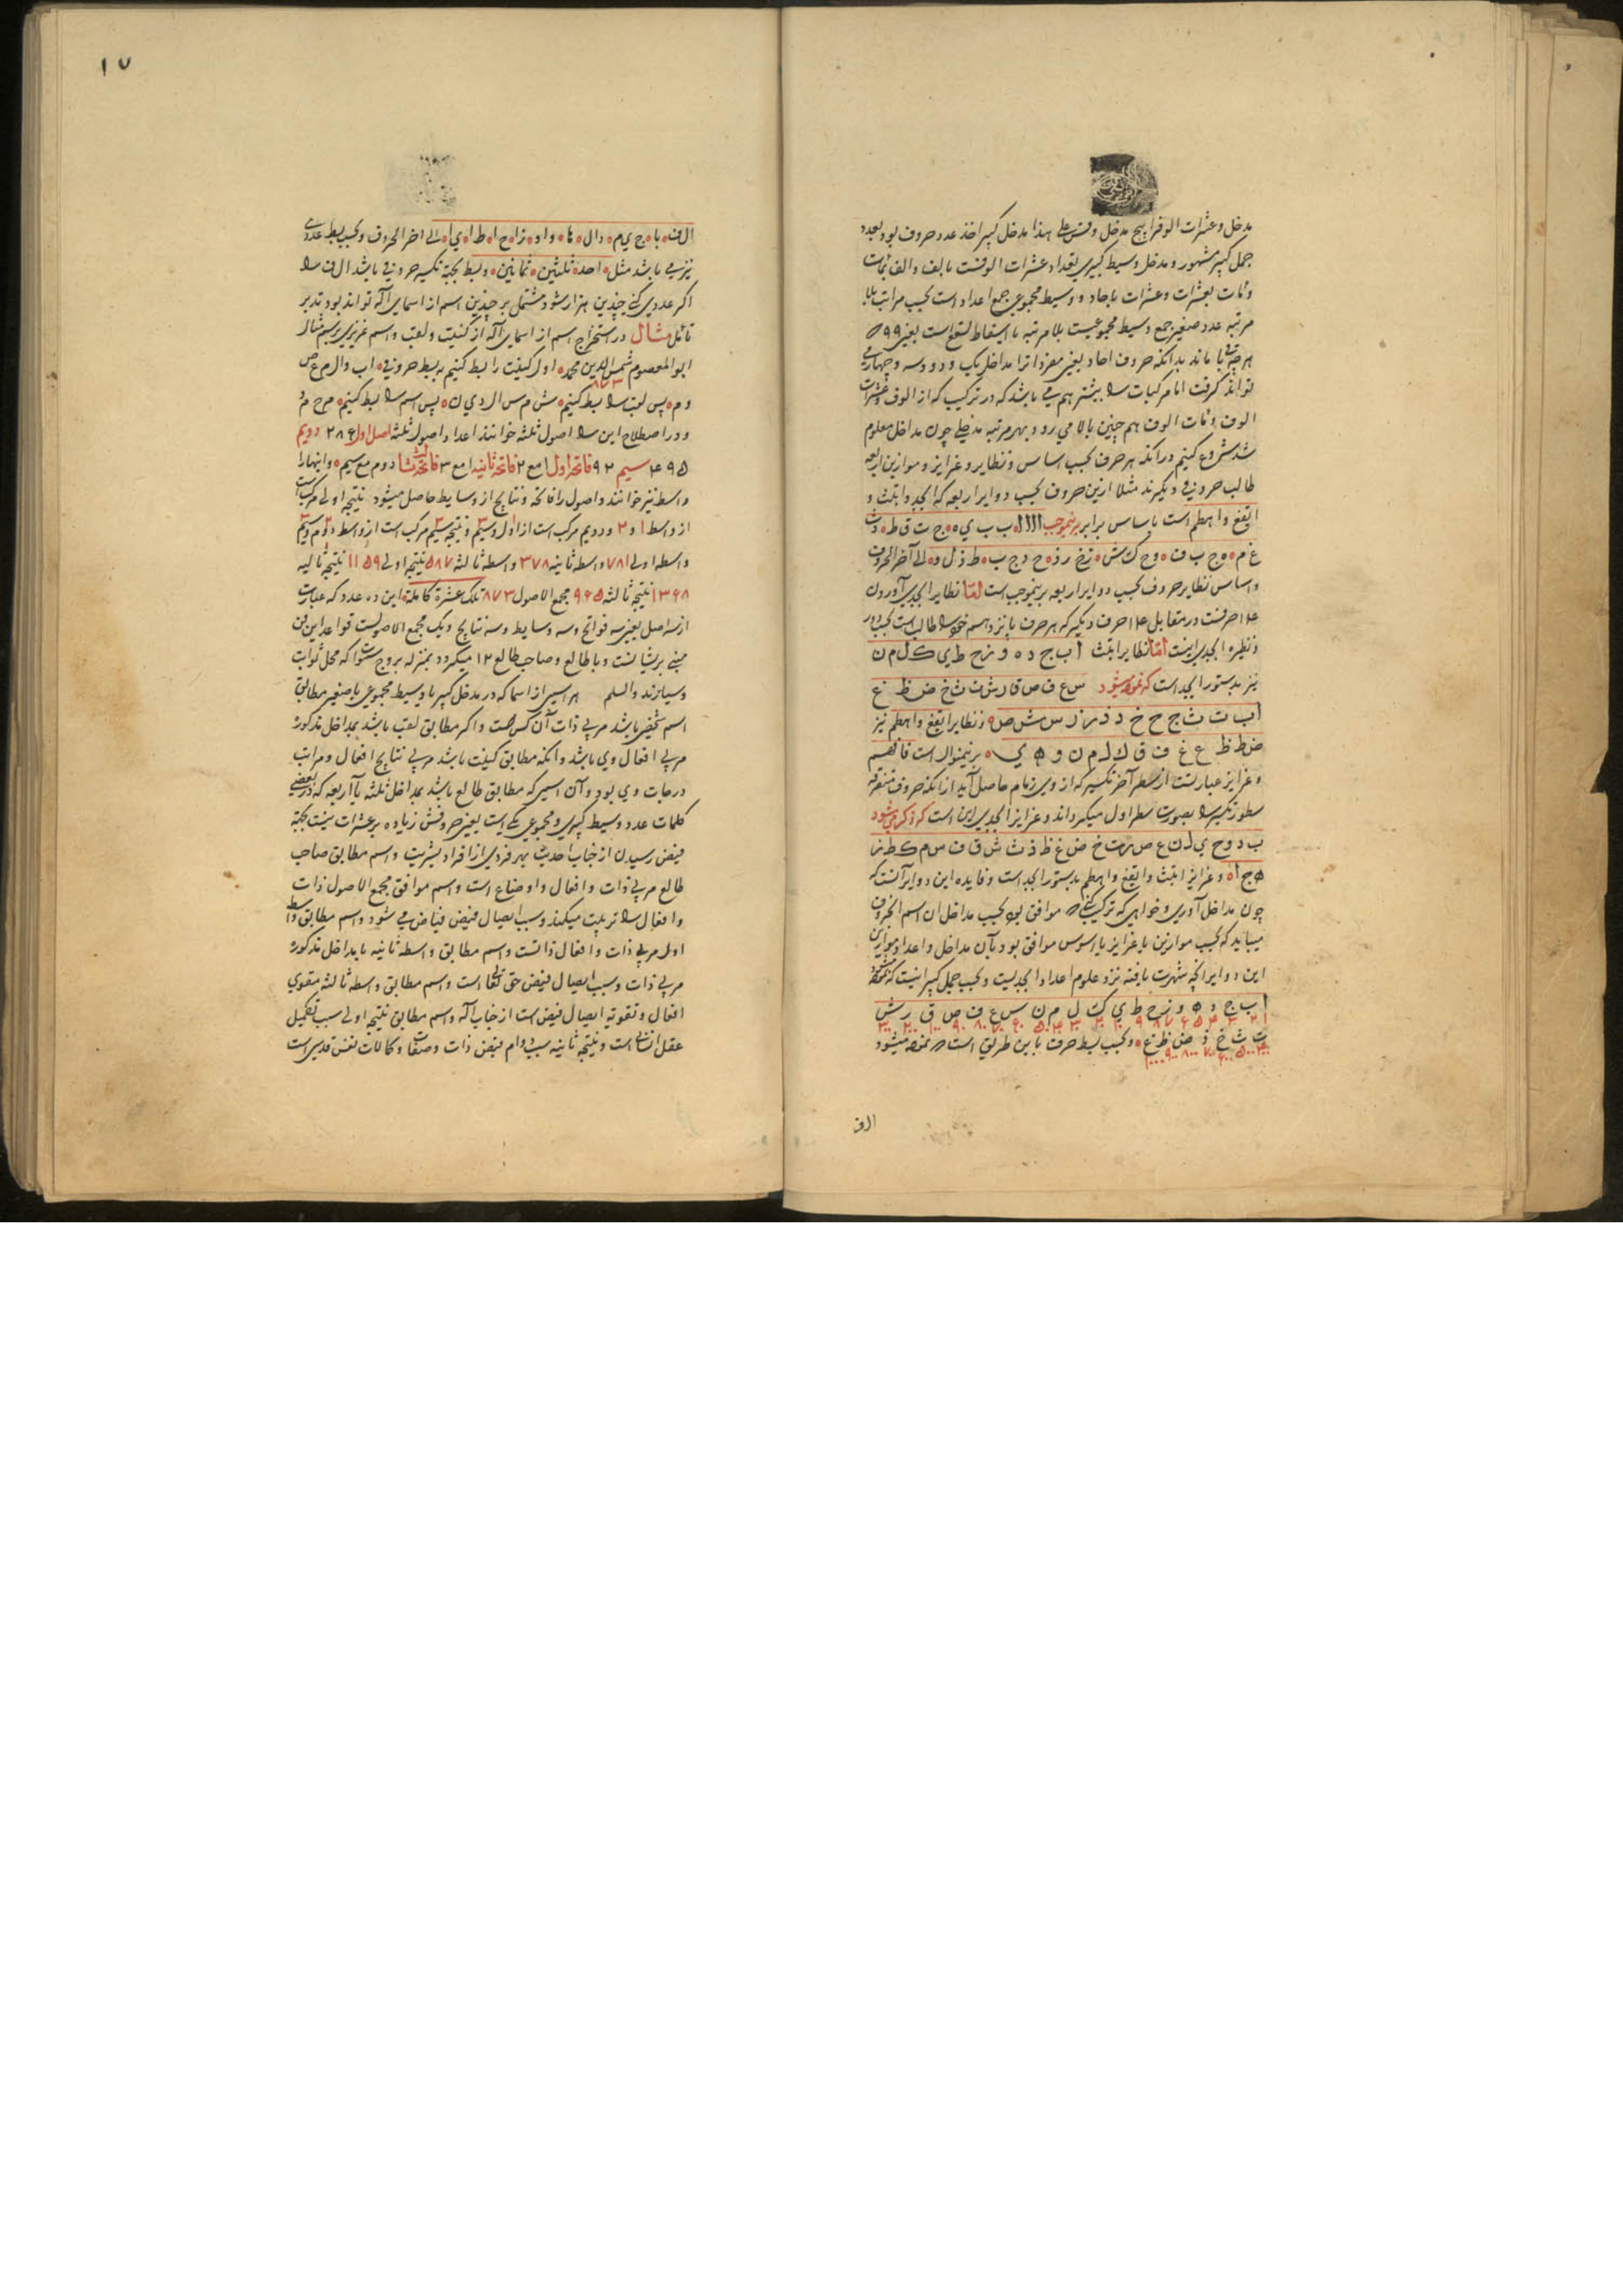 مدخل و عشرات الوفرا پنج مدخل وقس علی هذا مدخل کبیر اخذ عدد حروف بود بعدد
جمل کبیر مشهور و مدخل وسیط کبیری تعداد عشرات الوفست بالف والف بمآت
و مآت بعشرات و عشرات باحاد و وسیط مجموعی جمع اعداد است بحسب مراتب بلا
مرتبه عدد صغیر جمع وسیط مجموعیست بلا مرتبه با اسقاط تسع است یعنی ۹ ۹
هر چه باقی ماند بدانکه حروف احاد یعنی مفردات را مداخل یک و دو و سه و چهار می
تواند گرفت اما مرکبات را بیشتر هم می باشد که در ترکیب که از الوف و عشرات
الوف و مآت الوف هم چنین بالا می رود و بهر مرتبه مدخلی چون مداخل معلوم
شد شروع کنیم در آنکه هر حرف بحسب اساس و نظایر و غرایز و موازین اربعه
طالب حروفی دیگرند مثلا ازین حروف بحسب دوایر اربعه که ابجد و ابتث و
ایقغ و اهطم است با ساس برابر برینموجب ا ا ا ا ه ب ب ي ه ه ج ت ق ط ه د ث
غ م ه ه ج ب ف ه و ح ک ش ه ز خ ر ذ ه ح د ج ب ه ط ذ ل و ه الی آخر الحروف
و اساس نظایر حروف بحسب دوایر اربعه برینموجب است امّا نظایر ابجدی آوردن
۱۴ حرفست در مقابل ۱۴ حرف دیگر که هر حرف پانزدهم خود را طالب است بحسب دور
و نظیره ابجدی اینست امّا نظایر ابتث ا ب ج د ه و ز ح ط ي ک ل م ن
نیز بدستور ابجد است که نموده میشود س ع ف ص ق ر ش ت ث خ ذ ض ظ غ
ا ب ت ث ج ح خ د ذ ر ز س ش ص ه و نظایر ایقغ و اهطم نیز
ض ط ظ ع غ ف ق ک ل م ن و ه ي ه برینمنوال است فافهم
و غرایز عبارتست از سطر آخر تکسیر که از وی زمام حاصل آید از آنکه حروف متفرقه
سطور تکسیر را بصورت سطر اول میگرداند و غرایز ابجدی این است که ذکر می شود
ب د و ح ي ل ن ع ص ر ت خ ض غ ظ ذ ث ش ق ف س م ک ط ز
ه ج ا ه و غرایز ابتث و ایقغ و اهطم بدستور ابجد است و فایده این دوایر آنست که
چون مداخل آوری و خواهی که ترکیب کنی که موافق بود بحسب مداخل ان اسم الحروف
میباید که بحسب موازین یا غرایز یا اسوس موافق بود بآن مداخل و اعداد موازین
این دوایر آنچه شهرت یافته نزد علوم اعداد ابجدیست و بحسب جمل کبیر اینست که نموده میشود
ا ب ج د ه و ز ح ط ي ک ل م ن س ع ف ص ق ر ش
۱ ۲ ۳ ۴ ۵ ۶ ۷ ۸ ۹ ۱۰ ۲۰ ۳۰ ۴۰ ۵۰ ۶۰ ۷۰ ۸۰ ۹۰ ۱۰۰ ۲۰۰ ۳۰۰
ت ث خ ذ ض ظ غ ه و بحسب بسط حرف باین طریق است که نموده میشود
۴۰۰ ۵۰۰ ۶۰۰ ۷۰۰ ۸۰۰ ۹۰۰ ۱۰۰۰
الف
۱۷
ال ف ه با ه ج ي م ه دال ه ها ه واو ه زا ه ح ا ه ط ا ه ي ا ه الی اخر الحروف و بحسب بسط عددی
نیز می باشد مثل ه احد ه ثلثین ه ثمانین ه و بسط بجهة تکسیر حروفی باشد ال ف را
اگر عددی کنی چندین هزار شود مشتمل بر چندین اسم از اسمای آله تواند بود تدبر
تأمل مثال در استخراج اسم از اسمای آله از کنیت و لقب و اسم عزیزی برسم مثال
ابو المعصوم شمس الدین محمد ه اول کنیت را بسط کنیم به بسط حروفی ه ا ب و ا ل م ع ص
و م ه پس لقب را بسط کنیم ه ش م س ا ل د ي ن ه پس اسم را بسط کنیم ه م ح م د
و در اصطلاح این را اصول ثلثه خوانند اعداد اصول ثلثه اصل اول ۲۸۶ دویم
۴۹۵ سیم ۹۲ فاتحه اول ا مع ۲ فاتحه ثانیه ا مع ۳ فاتحه ثالثه دوم مع سیم ه و اینها را
واسطه نیز خوانند و اصول را فاتحه و نتایج از وسایط حاصل میشود نتیجه اولی مرکب است
از واسطه ا و ۲ و دویم مرکب است از اول و سیم و نتیجه سیم مرکب است از واسطه دوم و سیم
واسطه اولی ۷۸۱ واسطه ثانیه ۳۷۸ واسطه ثالثه ۵۸۷ نتیجه اولی ۱۱۵۹ نتیجه ثانیه
۱۳۶۸ نتیجه ثالثه ۹۶۵ مجمع الاصول ۸۷۳ تلک عشرة کاملة این ده عدد که عبارت
از سه اصل یعنی سه فواتح و سه وسایط و سه نتایج و یک مجمع الاصولست قواعد این فن
مبنی بر ایشانست و با طالع و صاحب طالع ۱۲ میگردد بمنزله بروج سموات که محل ثوابت
و سیارند والسلم هر اسمی از اسما که در مدخل کبیر یا وسیط مجموعی یا صغیر مطابق
اسم شخصی باشد مربی ذات آن کس است و اگر مطابق لقب باشد بمداخل مذکوره
مربی افعال وی باشد و آنکه مطابق کنیت باشد مربی نتایج افعال و مراتب
درجات وی بود و آن اسمی که مطابق طالع باشد بمداخل ثلثه یا اربعه که در بعضی
کلمات عدد وسیط کبیری و مجموعی یکی است یعنی حروفش زیاده بر عشرات نیست بجهة
فیض رسیدن از جناب احدیت بهر فردی از افراد بشریت و اسم مطابق صاحب
طالع مربی ذات و افعال و اوضاع است و اسم موافق مجمع الاصول ذات
و افعال را تربیت میکند و سبب ایصال فیض فیاض می شود و اسم مطابق واسطه
اولی مربی ذات و افعال ذاتست و اسم مطابق واسطه ثانیه بمداخل مذکوره
مربی ذات و سبب ایصال فیض حق تعالی است و اسم مطابق واسطه ثالثه مقوی
افعال و تقویه ایصال فیض است از جناب آله و اسم مطابق نتیجه اولی سبب تکمیل
عقل انسانی است و نتیجه ثانیه سبب دوام فیض ذات و صفات و کمالات نفس قدسی است